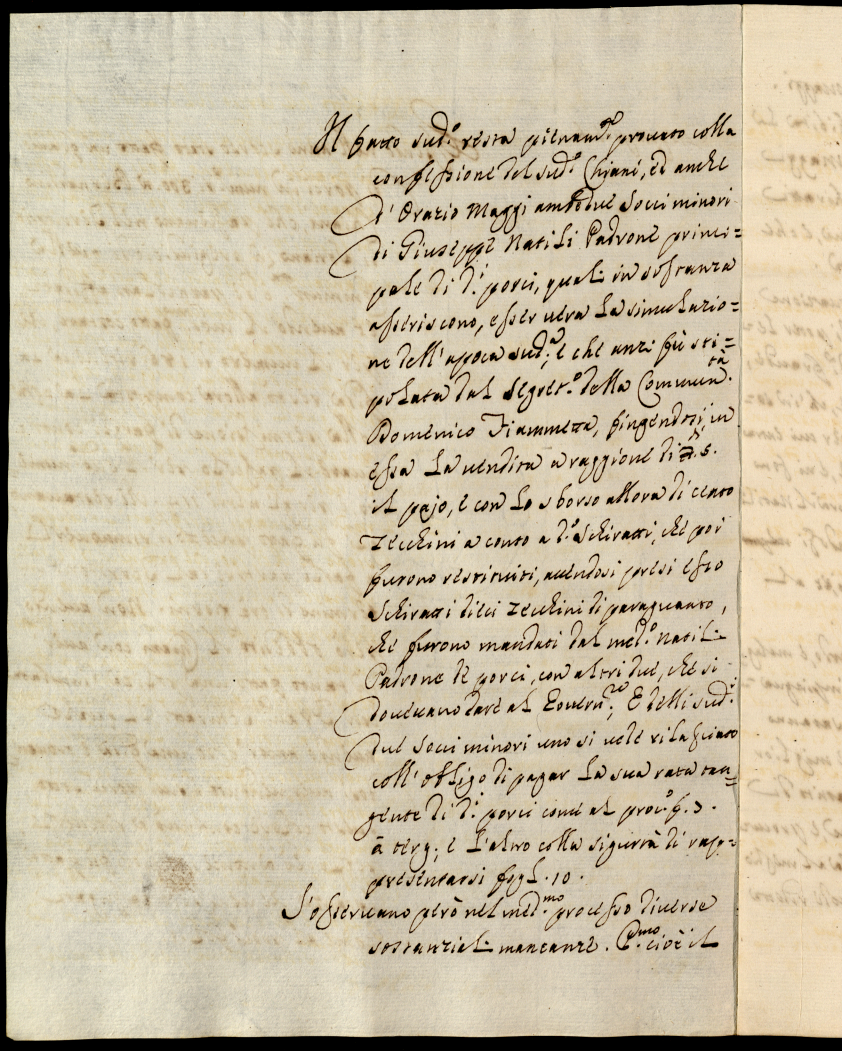 Il fatto sud.º resta pienam.te prouato colla
confessione del sud.º Chiani, ed anche
d'Orazio Maggi ambedue Socci minori
di Giuseppe Natili Padrone princi=
pale di d.i porci, quali in sostanza
asseriscono, esser uera la simulazio=
ne dell'apoca sud.a; e che anzi fù sti=
polata dal Segret.º della Commun.tà
Domenico Fiammetta, fingendosi in
essa la uendita a raggione di 5.
il pajo, e con lo sborso allora di cento
zecchini a conto a d.º Schiratti, che poi
furono restituiti, auendosi presi esso
Schiratti dieci zecchini di paraguanto,
che furono mandati dal med.º Natili
Padrone de porci, con altri due, che si
doueuano dare al Gouern.re; E delli sud.i
due Socci minori uno si uede rilasciato
coll'obligo di pagar la sua rata tan=
gente di d.i porci come al proc.º f. 3.
à terg; e l'altro colla sigurtà di rap=
presentarsi fogl. 10.
S'osseruano però nel med.mo processo diuerse
sostanziali mancanze. P.mo cioè il